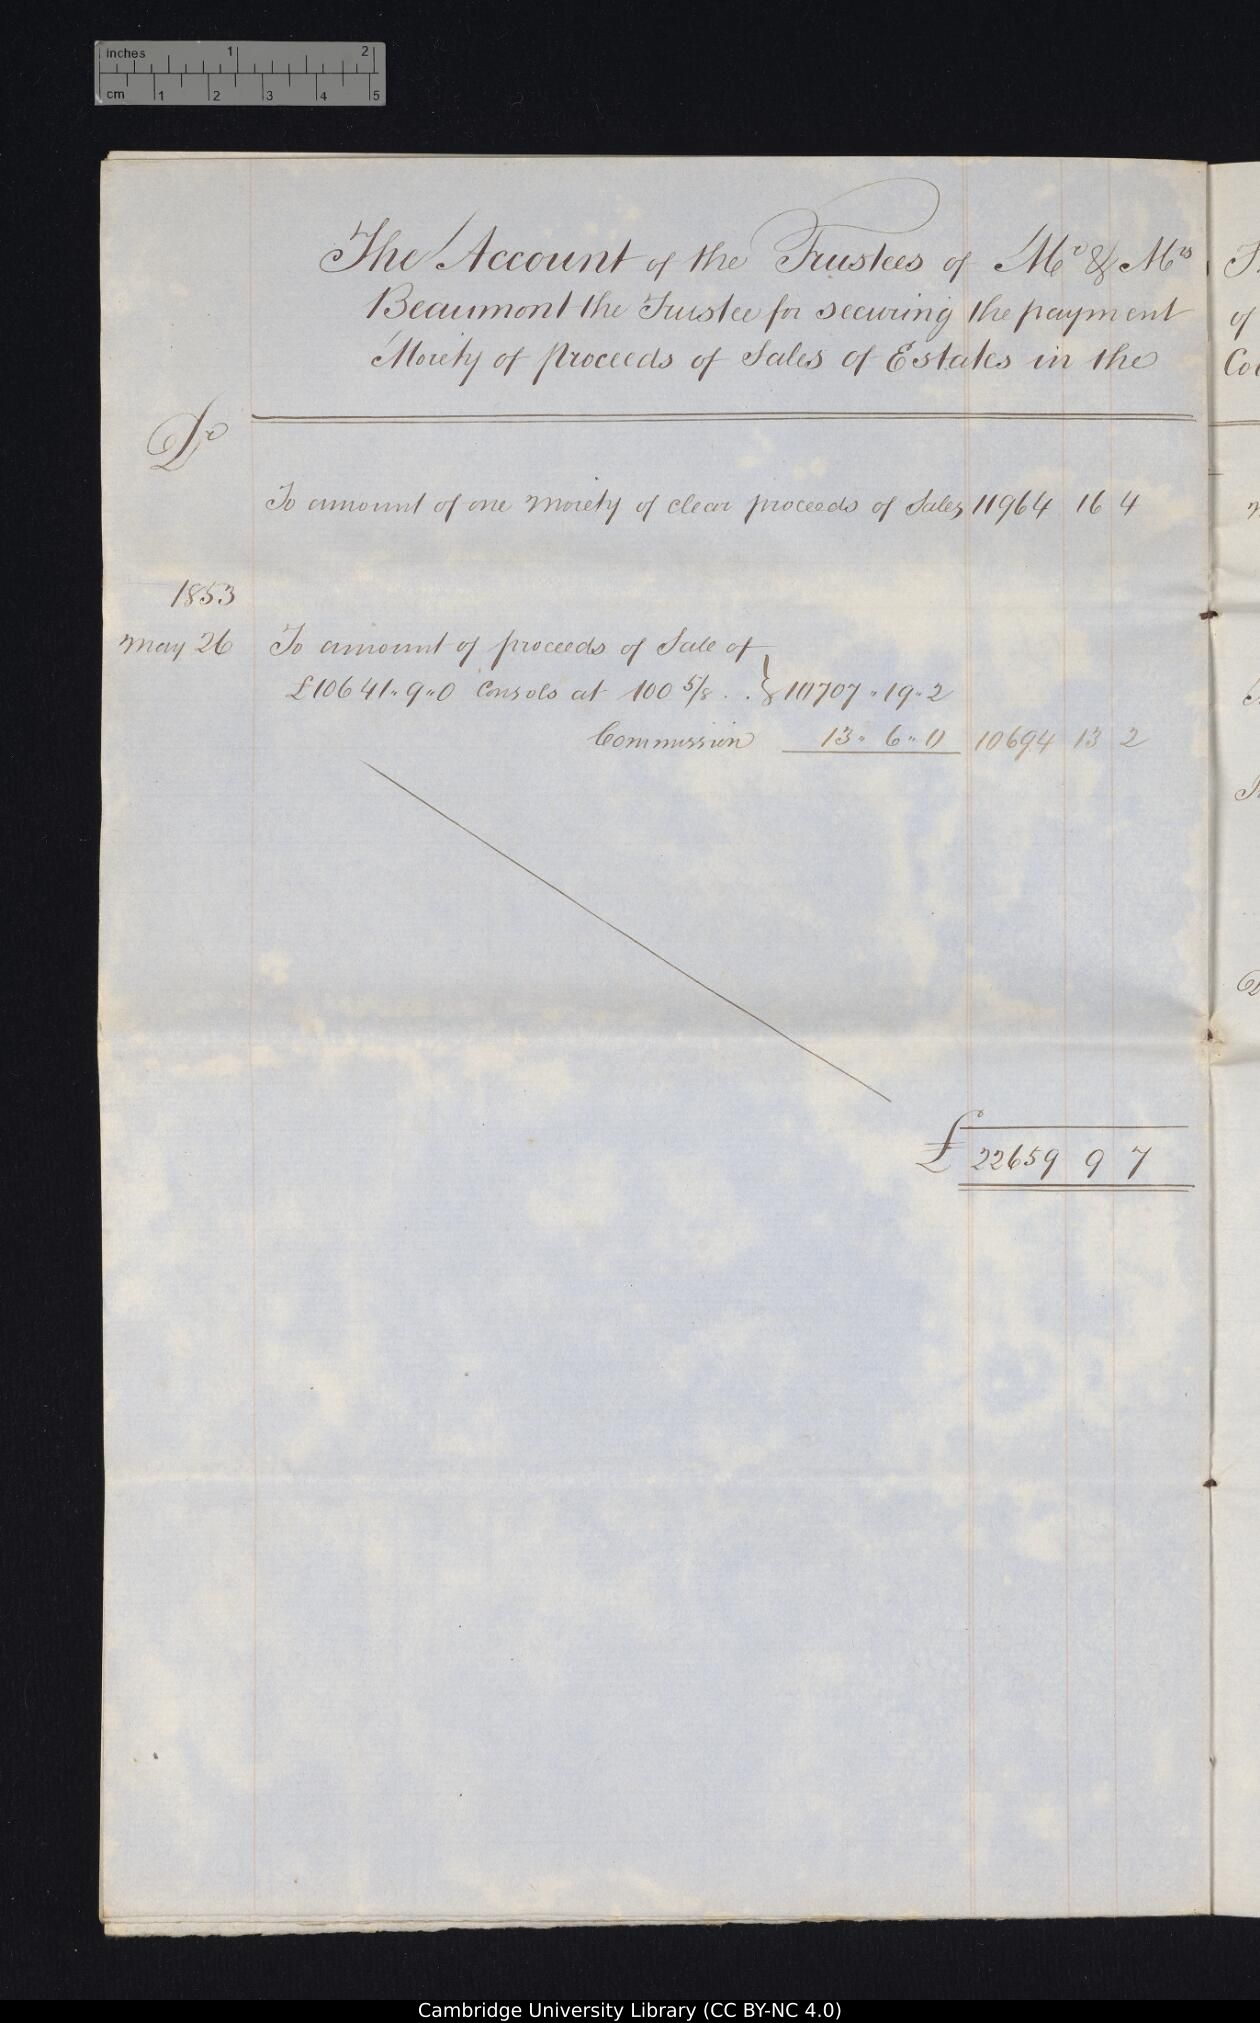 inches 1 2
cm 1 2 3 4 5
The Account of the Trustees of Mr & Mrs
Beaumont the Trustee for securing the payment
Moiety of Proceeds of Sales of Estates in the
Dr
To amount of one Moiety of clear proceeds of Sales 11964 16 4
1853
May 26 To amount of proceeds of Sale of
£10641 " 9 " 0 Consols at 100 5/8 . . } 10707 " 19 " 2
Commission 13 " 6 " 0 10694 13 2
£ 22659 9 7
of
Cambridge University Library (CC BY-NC 4.0)